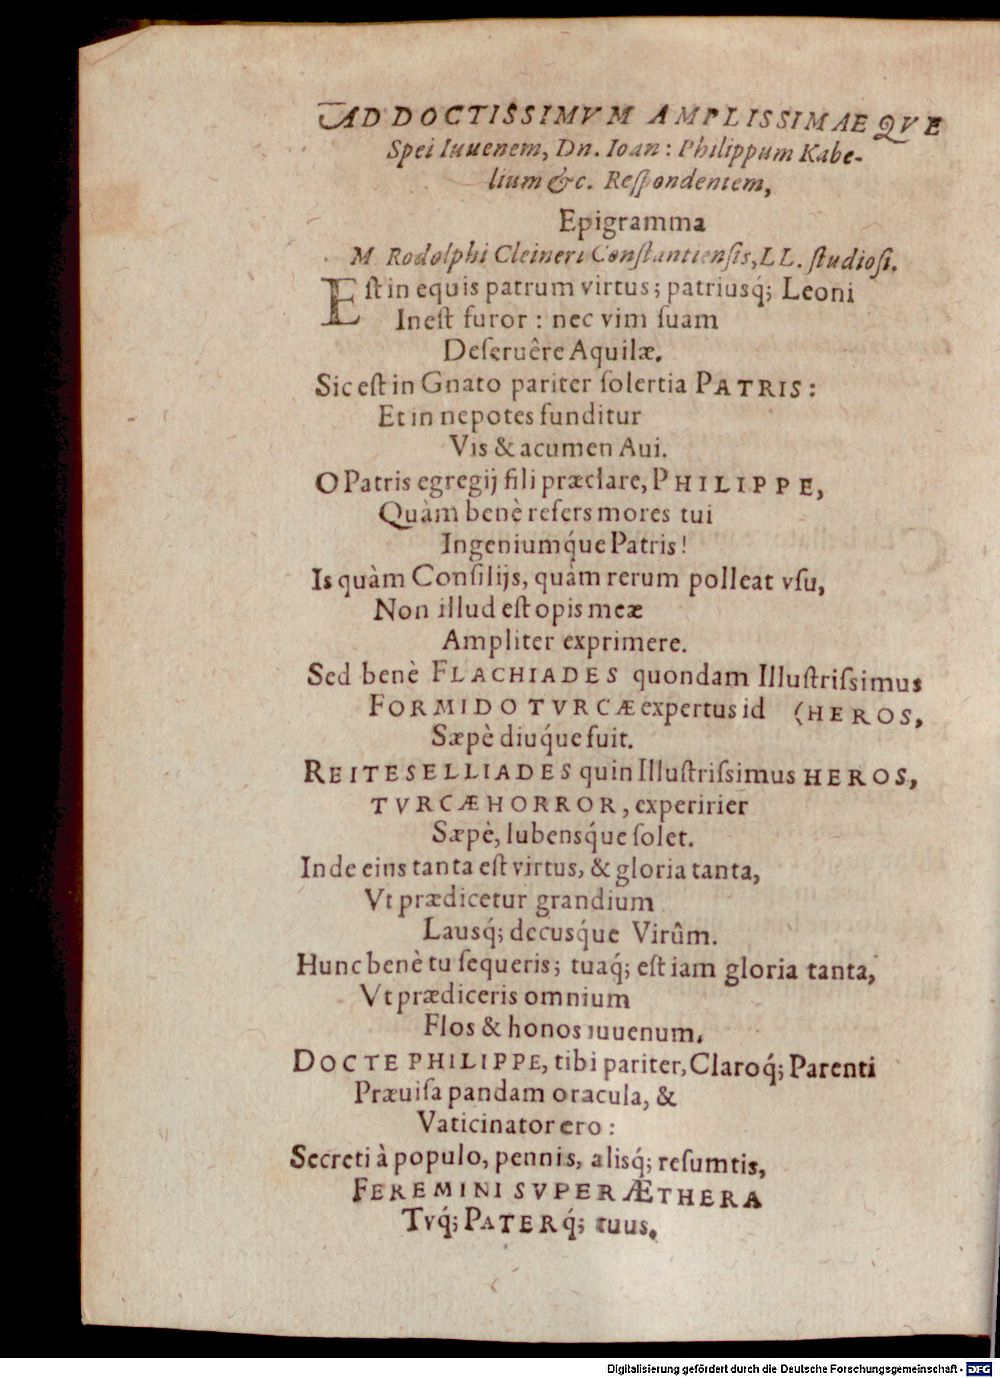 AD DOCTISSIMVM AMPLISSIMAEQVE
Spei Iuuenem, Dn. Ioan: Philippum Kabe-
lium &c. Respondentem,
Epigramma
M. Rodolphi Cleineri Constantiensis, LL. studiosi.
Est in equis patrum virtus; patriusq́; Leoni
Inest furor: nec vim suam
Deseruêre Aquilæ.
Sic est in Gnato pariter solertia PATRIS:
Et in nepotes funditur
Vis & acumen Aui.
O Patris egregij fili præclare, PHILIPPE,
Quàm benè refers mores tui
Ingeniumq́ue Patris!
Is quàm Consilijs, quàm rerum polleat vsu,
Non illud est opis meæ
Ampliter exprimere.
Sed benè FLACHIADES quondam Illustrissimus
FORMIDO TVRCÆ expertus id (HEROS,
Sæpè diuq́ue fuit.
REITESELLIADES quin Illustrissimus HEROS,
TVRCÆ HORROR, experirier
Sæpè, lubensq́ue solet.
Inde eius tanta est virtus, & gloria tanta,
Vt prædicetur grandium
Lausq́; decusq́ue Virûm.
Hunc benè tu sequeris; tuaq́; est iam gloria tanta,
Vt prædiceris omnium
Flos & honos iuuenum.
DOCTE PHILIPPE, tibi pariter, Claroq́; Parenti
Præuisa pandam oracula, &
Vaticinator ero:
Secreti à populo, pennis, alisq́; resumtis,
FEREMINI SVPER ÆTHERA
Tvq́; PATERq́; tuus.
Digitalisierung gefördert durch die Deutsche Forschungsgemeinschaft - DFG